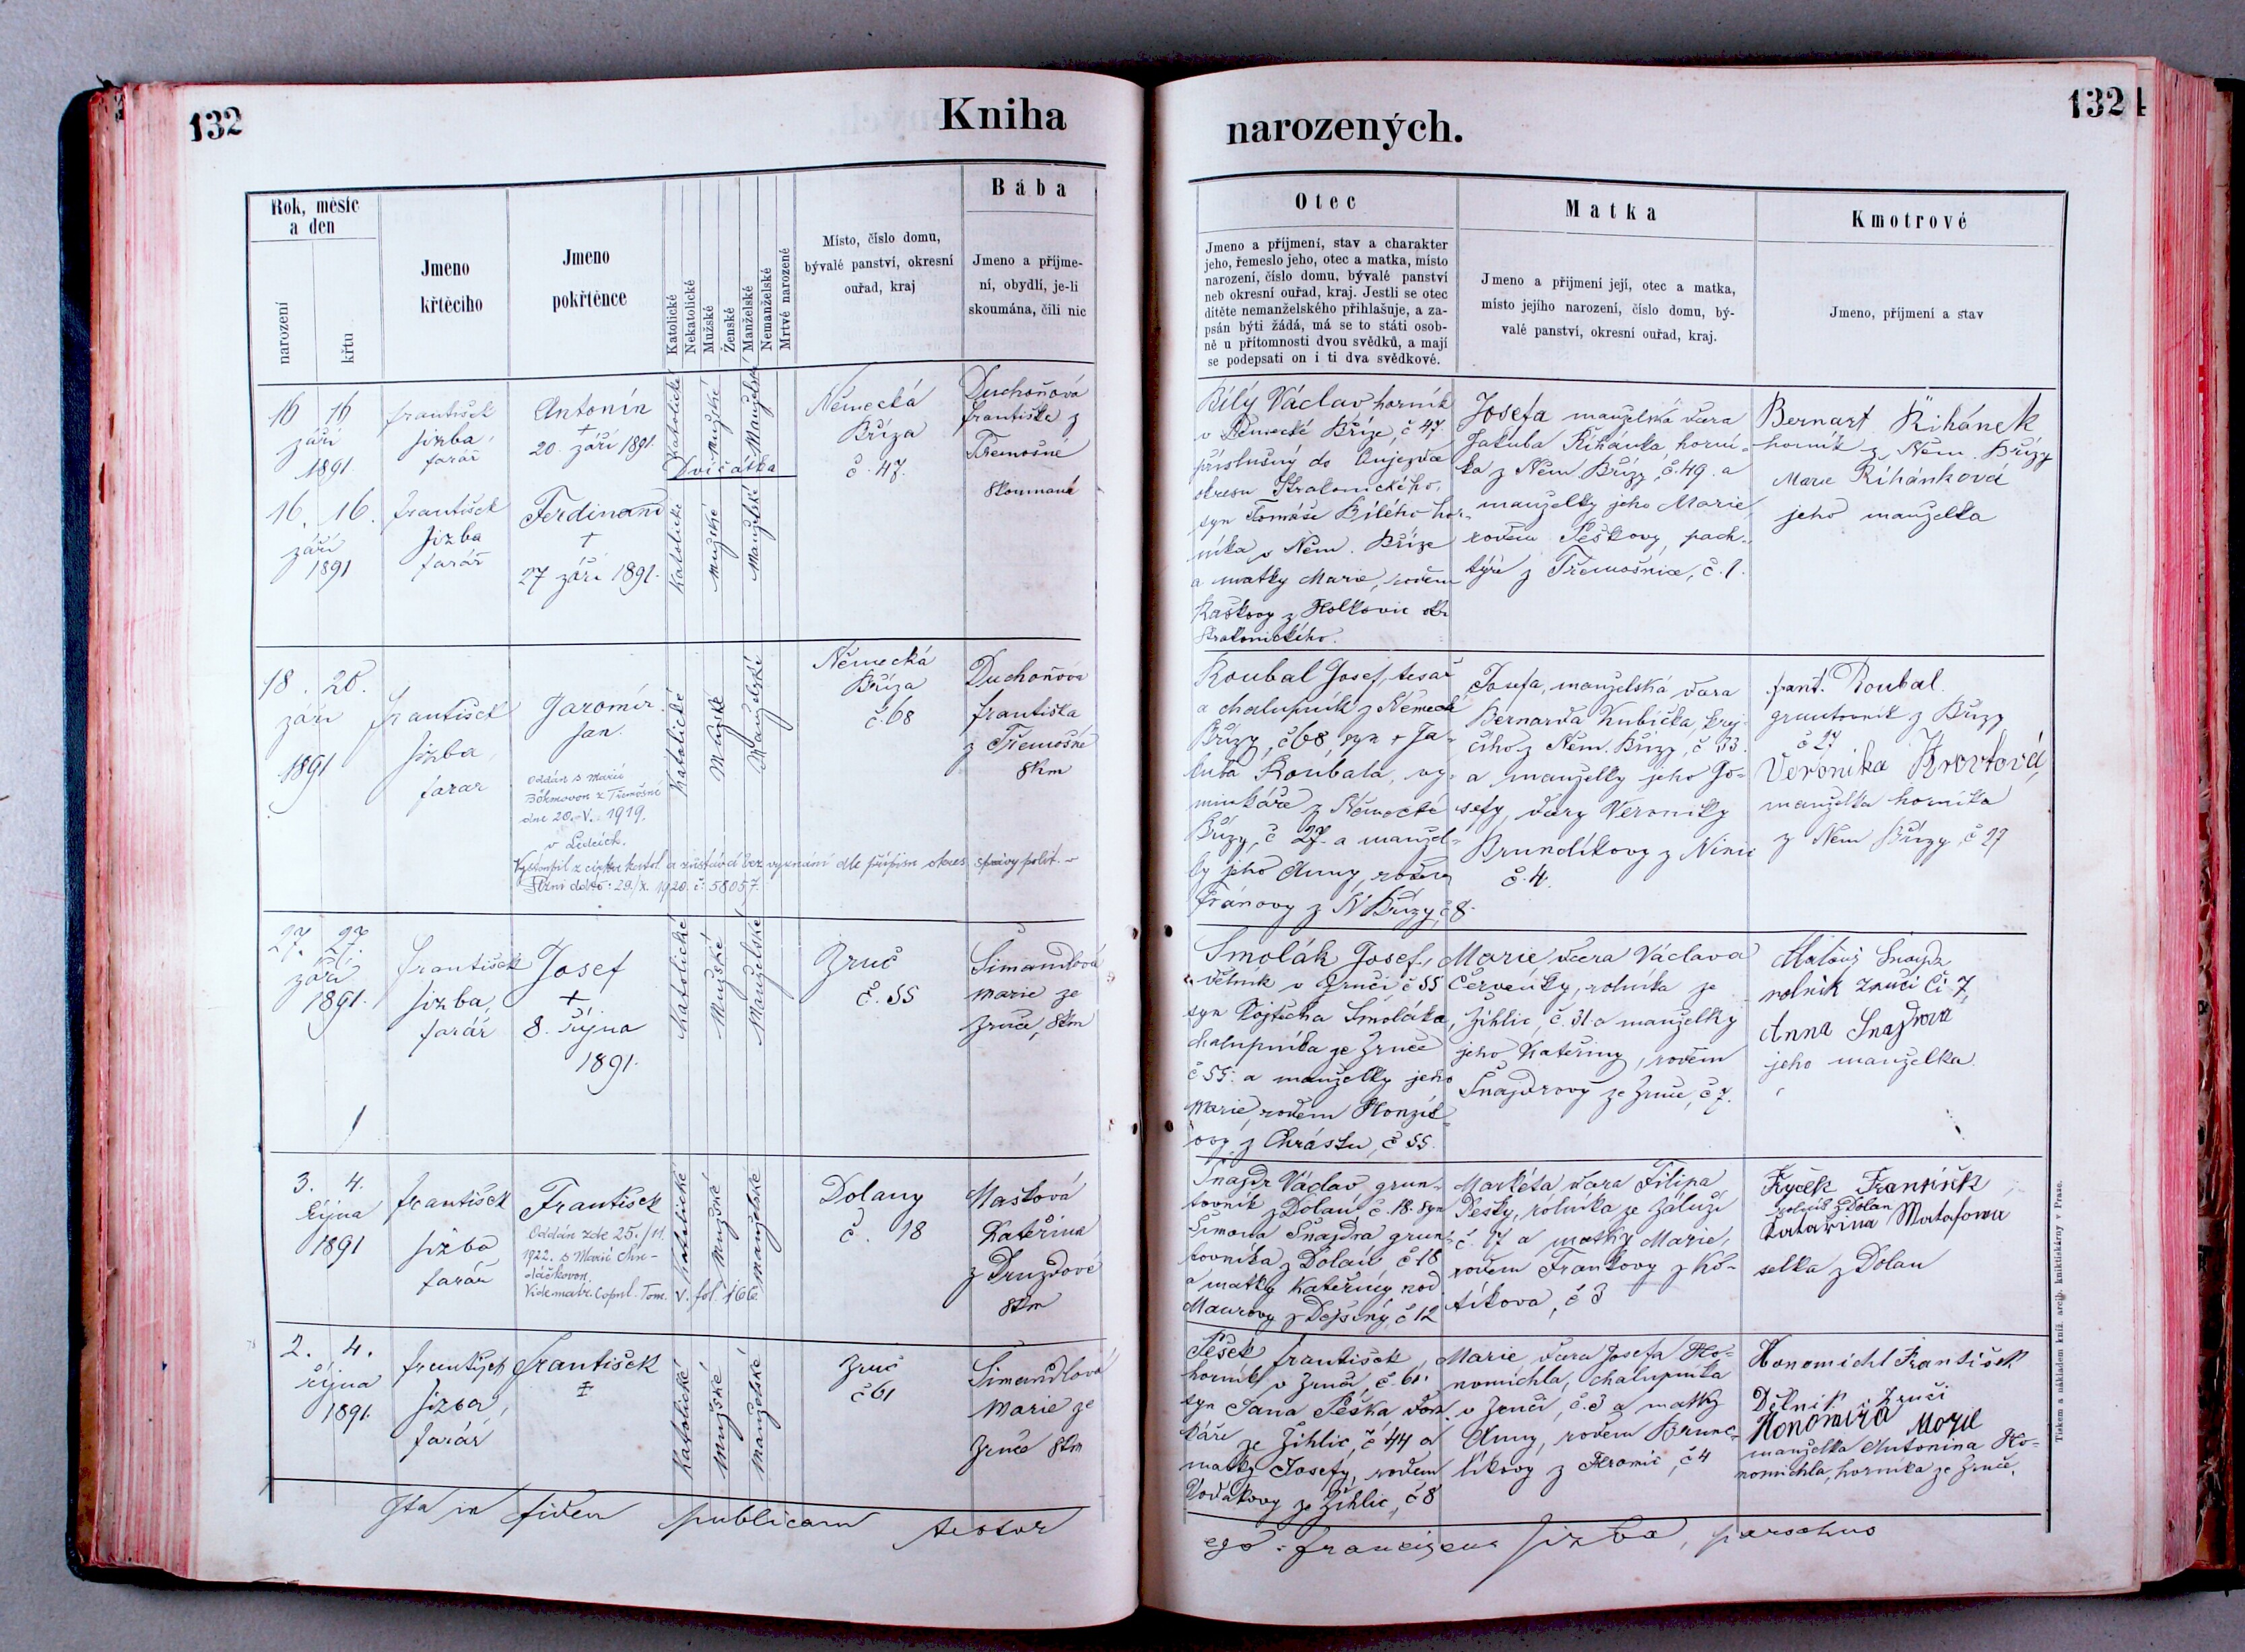 132
Kniha
Rok, měsíc
a den
narození
křtu
Jmeno
křtěcího
Jmeno
pokřtěnce
Katolické
Nekatolické
Mužské
Ženské
Manželské
Nemanželské
Mrtvé narozené
Místo, číslo domu,
bývalé panství, okresní
ouřad, kraj
Bába
Jmeno a příjme-
ní, obydlí, je-li
skoumána, čili nic
16 16
září
1891
František
Jizba,
farář
Antonín
+
20. září 1891.
Katolické
Mužské
Manželské
Dvíčátka
Německá
Bříza
č. 47.
Duchoňová
Františka z
Třemošné
skoumaná
16. 16.
září
1891
František
Jizba
farář
Ferdinand
+
27 září 1891.
Katolické
Mužské
Manželské
18. 20.
září
1891
František
Jizba,
farář
Jaromír
Jan.
Oddán s Marií
Böhmovou z Třemošné
dne 20.-V. 1919.
v Ledcích.
Vystoupil z církve katol. a zůstává bez vyznání dle přípisu okres. správy polit. v
Plzni ddto: 29/X. 1920. č: 58057.
Katolické
Mužské
Manželské
Německá
Bříza
č. 68
Duchoňová
Františka
z Třemošné
skm
27. 27.
září
1891.
František
Jizba,
farář
Josef
+
8. Října
1891.
Katolické
Mužské
Manželské
Zruč
č. 55
Šimandlová
Marie ze
Zruče, skm
3. 4.
Října
1891
František
Jizba
farář
František
Oddán zde 25./11.
1922. s Marií
Vide matr. Copul. Tom. V. fol. 166.
Katolické
Mužské
Manželské
Dolany
č. 18
Mašková
Kateřina
z Druzdové
skm
2. 4.
října
1891.
František
Jizba,
farář
František
‡
Katolické
Mužské
Manželské
Zruč
č 61
Šimandlová
Marie ze
Zruče skm
Ita in fidem publicam testor
132
narozených.
Otec
Jmeno a příjmení, stav a charakter
jeho, řemeslo jeho, otec a matka, místo
narození, číslo domu, bývalé panství
neb okresní ouřad, kraj. Jestli se otec
dítěte nemanželského přihlašuje, a za-
psán býti žádá, má se to státi osob-
ně u přítomnosti dvou svědků, a mají
se podepsati on i ti dva svědkové.
Matka
Jmeno a příjmení její, otec a matka,
místo jejího narození, číslo domu, bý-
valé panství, okresní ouřad, kraj.
Kmotrové
Jmeno, příjmení a stav
Bílý Václav horník
v Německé Bříze, č 47.
příslušný do Oujezda
okresu Strakonického,
syn Tomáše Bílého hor-
níka v Něm. Bříze
a matky Marie, rodem
Kaškovy z Holkovic okr
Strakonického.
Josefa manželská dcera
Jakuba Říhánka, horní-
ka z Něm. Břízy, č. 49. a
manželky jeho Marie,
rodem Peškovy, pach-
týře z Třemošnice, č. 1.
Bernart Řihánek
horník z Něm. Břízy
Marie Řihánková
jeho manželka
Koubal Josef, tesař
a chalupník z Německé
Břízy, č 68, syn + Ja-
kuba Koubala, vý-
minkáře z Německé
Břízy, č 27. a manžel-
ky jeho Anny, rodem
Fránovy z N Břízy, č 8.
Josefa, manželská dcera
Bernarda Kubička, krej-
čího z Něm. Břízy, č 33.
a manželky jeho Jo-
sefy, dcery Veroniky
Brunclíkovy z Nínic
č. 4.
Frant. Koubal.
gruntovník z Břízy
č 27
Veronika
manželka horníka
z Něm Břízy, č 27
Smolák Josef,
dělník v Zruči č 55
syn Vojtěcha Smoláka,
chalupníka ze Zruče
č 55. a manželky jeho
Marie, rodem Honzík-
ovy z Chrástu, č 55.
Marie dcera Václava
Červenky, rolníka ze
Žihlic, č. 31 a manželky
jeho Kateřiny, rodem
Šnajdrovy ze Zruče, č 7.
Matouš Šnajdr
rolník Zruči Či 7,
Anna Šnajdrová
jeho manželka
Šnajdr Václav, grun-
tovník z Dolan, č. 18. syn
Šimona Šnajdra grun-
tovníka z Dolan č 18
a matky Kateřiny rod
Maurovy z Dejšiny, č 12
Markéta dcera Filipa
Pešky, rolníka ze Záluží
č. 17 a matky Marie,
rodem Frankovy z Ko-
tíkova, č 3
František
rolník z Dolan
Katařina
selka z Dolan
Pešek František,
horník v Zruči, č. 61.
syn Jana Peška
ze Žihlic, č 44 a
matky Josefy, rodem
Vodákovy ze Žihlic, č 8
Marie dcera Josefa Ho-
nomichla, chalupníka
v Zruči, č. 3 a matky
Anny, rodem Brunc-
líkovy z Hromic, č 4
Honomichl František
Dělník z Zruči
Marie
manželka Antonína Ho-
nomichla, horníka ze Zruče.
ego: Franciscus Jizba, parochus
Tiskem a nákladem kníž. arcib. knihtiskárny v Praze.